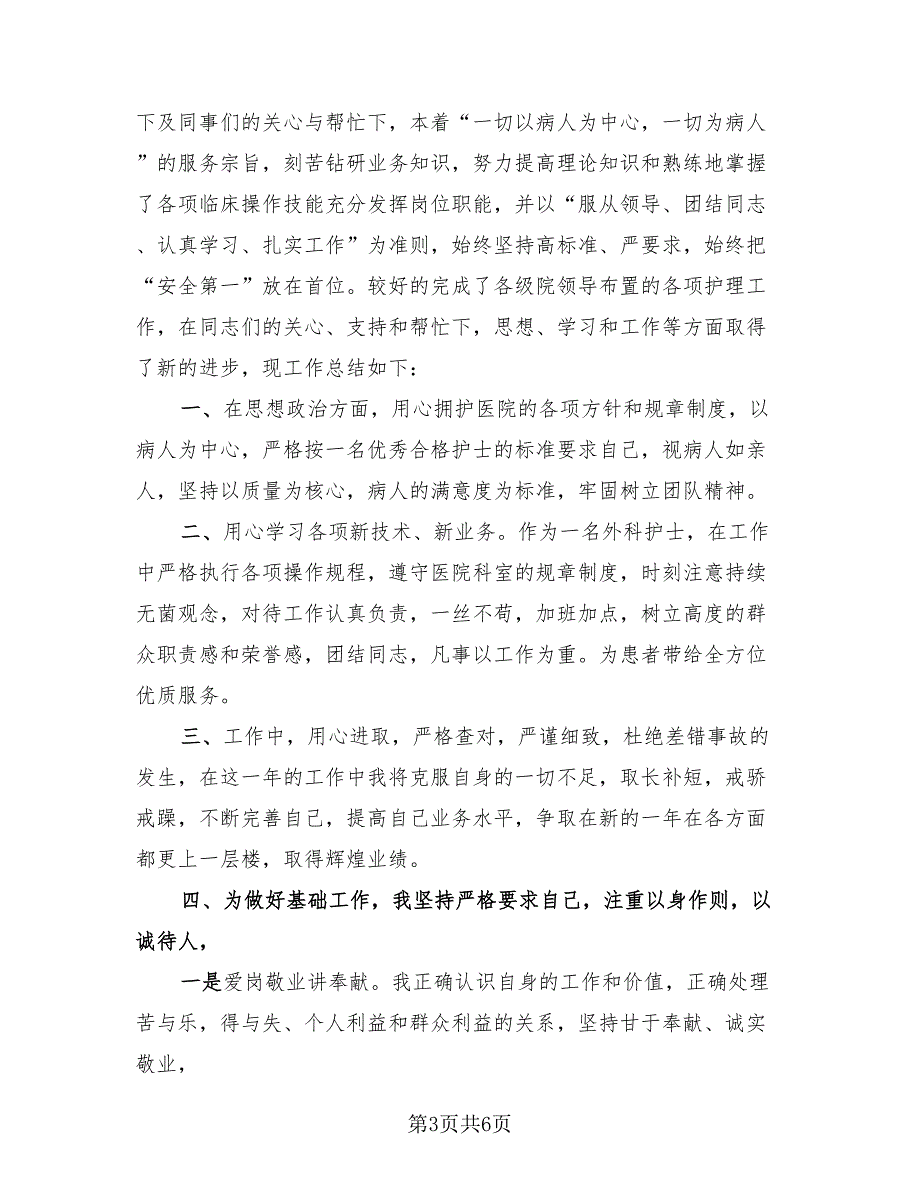 下及同事们的关心与帮忙下，本着“一切以病人为中心，一切为病人
”的服务宗旨，刻苦钻研业务知识，努力提高理论知识和熟练地掌握
了各项临床操作技能充分发挥岗位职能，并以“服从领导、团结同志
、认真学习、扎实工作”为准则，始终坚持高标准、严要求，始终把
“安全第一”放在首位。较好的完成了各级院领导布置的各项护理工
作，在同志们的关心、支持和帮忙下，思想、学习和工作等方面取得
了新的进步，现工作总结如下：
一、在思想政治方面，用心拥护医院的各项方针和规章制度，以
病人为中心，严格按一名优秀合格护士的标准要求自己，视病人如亲
人，坚持以质量为核心，病人的满意度为标准，牢固树立团队精神。
二、用心学习各项新技术、新业务。作为一名外科护士，在工作
中严格执行各项操作规程，遵守医院科室的规章制度，时刻注意持续
无菌观念，对待工作认真负责，一丝不苟，加班加点，树立高度的群
众职责感和荣誉感，团结同志，凡事以工作为重。为患者带给全方位
优质服务。
三、工作中，用心进取，严格查对，严谨细致，杜绝差错事故的
发生，在这一年的工作中我将克服自身的一切不足，取长补短，戒骄
戒躁，不断完善自己，提高自己业务水平，争取在新的一年在各方面
都更上一层楼，取得辉煌业绩。
四、为做好基础工作，我坚持严格要求自己，注重以身作则，以
诚待人，
一是爱岗敬业讲奉献。我正确认识自身的工作和价值，正确处理
苦与乐，得与失、个人利益和群众利益的关系，坚持甘于奉献、诚实
敬业，
第3页共6页